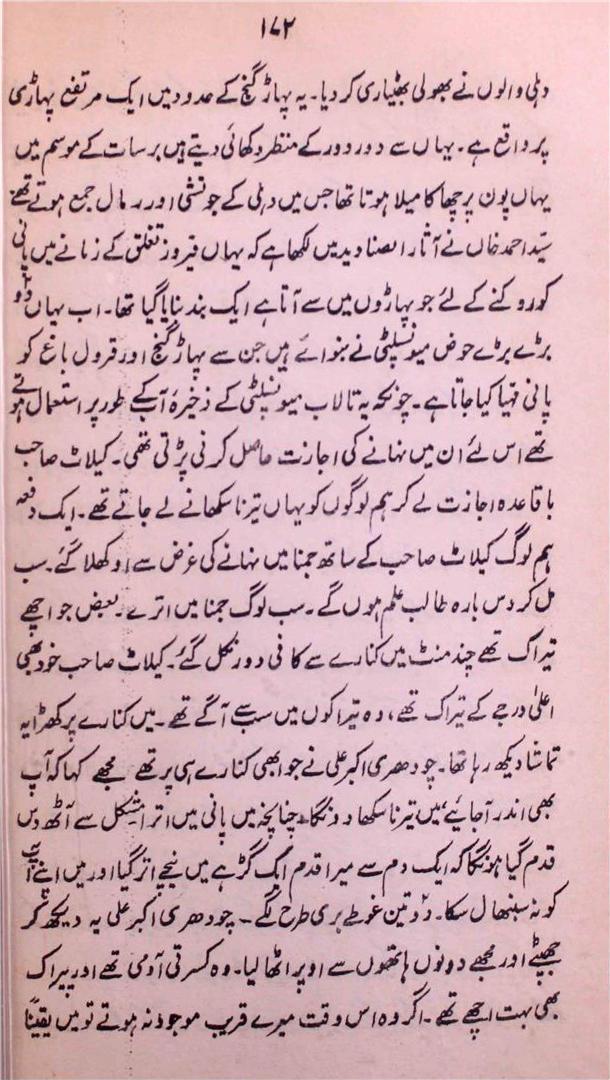 ۱۷۲
دہلی والوں نے بھولی بھٹیاری کر دیا۔ یہ پہاڑ گنج کے حدود میں ایک مرتفع پہاڑی
پر واقع ہے۔ یہاں سے دور دور کے منظر دکھائی دیتے ہیں برسات کے موسم میں
یہاں پون پرچھا کا میلا ہوتا تھا جس میں دہلی کے جوتشی اور رمال جمع ہوتے تھے
سیّد احمد خاں نے آثار الصنادید میں لکھا ہے کہ یہاں فیروز تغلق کے زمانے میں پانی
کو روکنے کے لئے جو پہاڑوں میں سے آتا ہے ایک بند بنایا گیا تھا۔ اب یہاں دو
بڑے بڑے حوض میونسپلٹی نے بنوائے ہیں جن سے پہاڑ گنج اور قرول باغ کو
پانی مہیا کیا جاتا ہے۔ چونکہ یہ تالاب میونسپلٹی کے ذخیرۂ آب کے طور پر استعمال ہوتے
تھے اس لئے ان میں نہانے کی اجازت حاصل کرنی پڑتی تھی۔ کیلاٹ صاحب
باقاعدہ اجازت لے کر ہم لوگوں کو یہاں تیرنا سکھانے لے جاتے تھے۔ ایک دفعہ
ہم لوگ کیلاٹ صاحب کے ساتھ جمنا میں نہانے کی غرض سے اوکھلا گئے۔ سب
مل کر دس بارہ طالب علم ہوں گے۔ سب لوگ جمنا میں اترے۔ بعض جو اچھے
تیراک تھے چند منٹ میں کنارے سے کافی دور نکل گئے۔ کیلاٹ صاحب خود بھی
اعلیٰ درجے کے تیراک تھے، وہ تیراکوں میں سب سے آگے تھے۔ میں کنارے پر کھڑا یہ
تماشا دیکھ رہا تھا۔ چودھری اکبر علی نے جو ابھی کنارے ہی پر تھے مجھے کہا کہ آپ
بھی اندر آجائیے میں تیرنا سکھا دونگا۔ چنانچہ میں پانی میں اترا مشکل سے آٹھ دس
قدم گیا ہونگا کہ ایک دم سے میرا قدم ایک گڑھے میں نیچے اتر گیا اور میں اپنے آپ
کو نہ سنبھال سکا۔ دو تین غوطے بری طرح لگے۔ چودھری اکبر علی یہ دیکھ کر
جھپٹے اور مجھے دونوں ہاتھوں سے اوپر اٹھا لیا۔ وہ کسرتی آدمی تھے اور پیراک
بھی بہت اچھے تھے۔ اگر وہ اس وقت میرے قریب موجود نہ ہوتے تو میں یقیناً